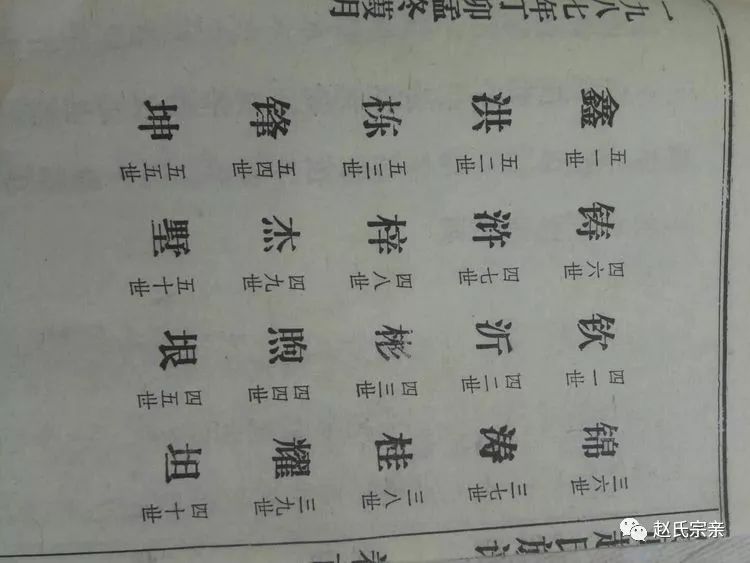 锦 三六世 涛 三七世 桂 三八世 耀 三九世 坦 四十世
钦 四一世 沂 四二世 彬 四三世 煦 四四世 垠 四五世
铸 四六世 浒 四七世 梓 四八世 杰 四九世 墅 五十世
鑫 五一世 洪 五二世 栋 五三世 锋 五四世 坤 五五世
一九八七年丁卯孟冬月
赵氏宗亲